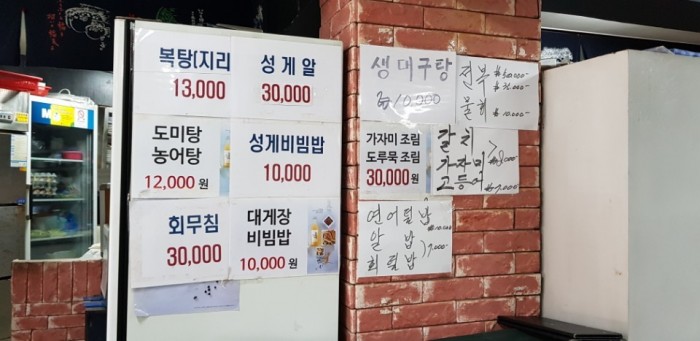 복탕(지리
13,000
성게알
30,000
도미탕
농어탕
12,000 원
성게비빔밥
10,000
회무침
30,000
대게장
비빔밥
10,000 원
생대구탕
₩10,000
전복
물회
₩10,000
가자미 조림
도루묵 조림
30,000 원
갈치
가자미
고등어
₩7,000-
연어덮밥
₩10,000
알밥
회덮밥
7,000-